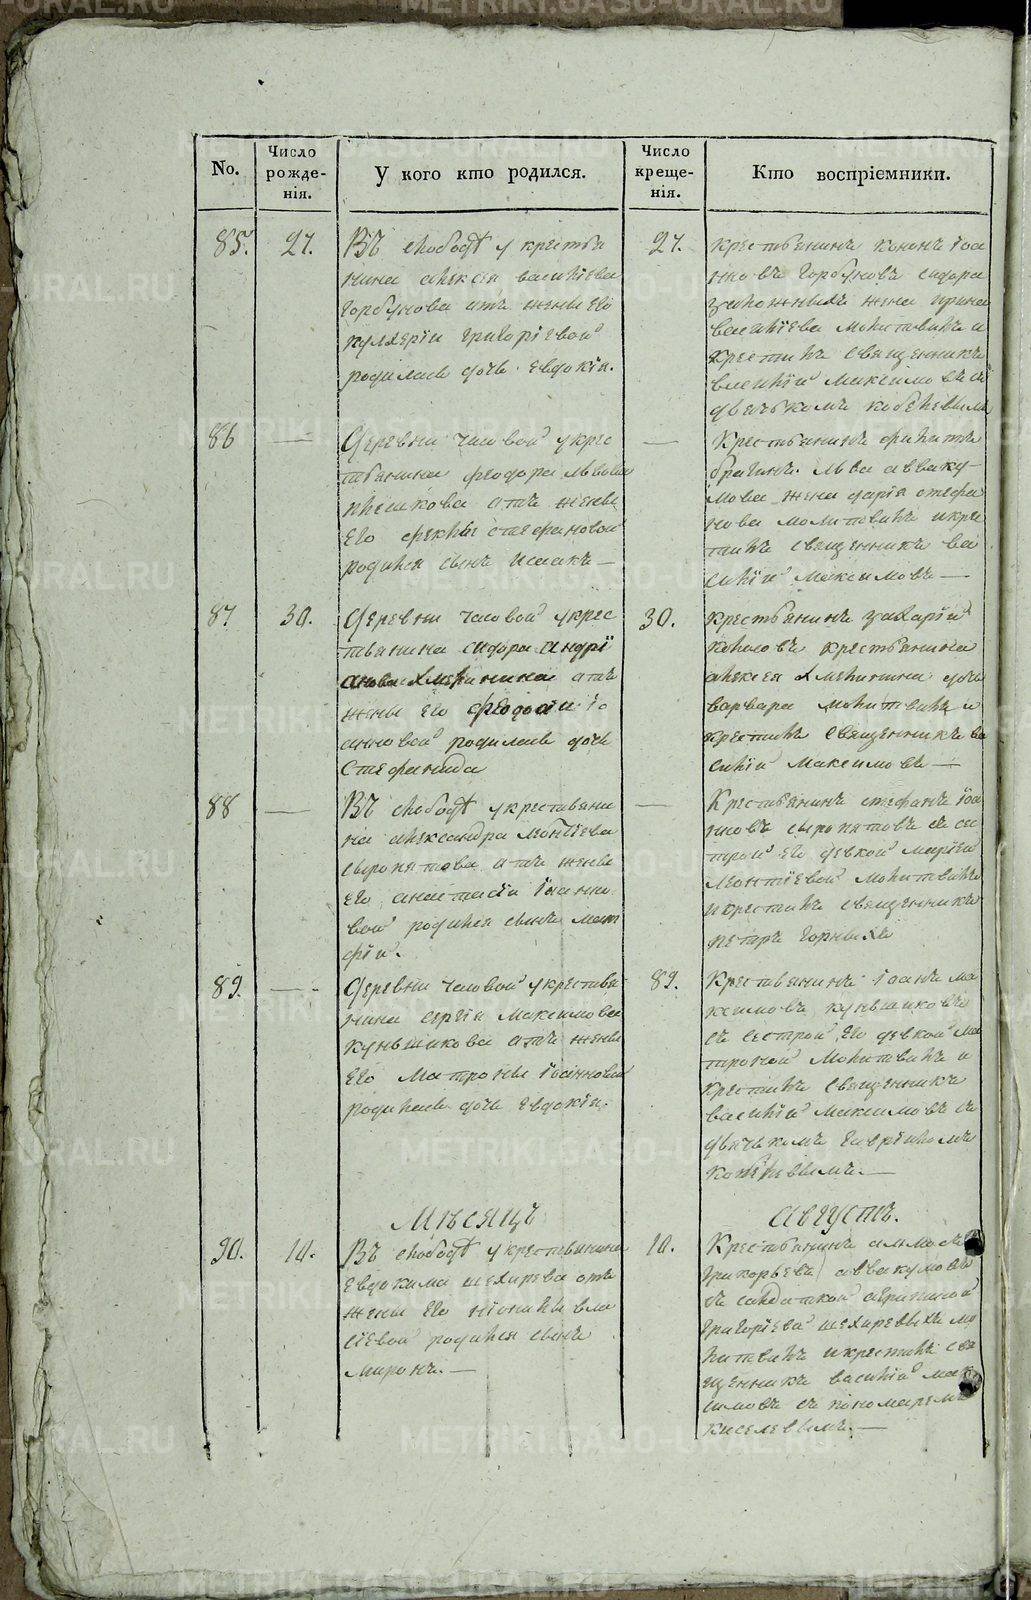 No.
Число рожде-нія.
У кого кто родился.
Число креще-нія.
Кто воспріемники.
85.
27.
Въ слободѣ у крестья
нина алексея василіева
горбунова отъ жены его
гликеріи григоріевой
родилась дочь евдокія.
27.
крестьянинъ кононъ іоа
нновъ горбуновъ сидора
жена ирина
василіева молитвилъ и
крестилъ священникъ
василій максимовъ съ
дьячькомъ кобелевымъ
86
—
Деревни часовой у крес
тьянина феодора львова
плешкова отъ жены
его феклы стефановой
родился сынъ исаакъ —
—
Крестьянинъ филипъ
брагинъ. льва авваку-
мова жена дарія стефа
нова молитвилъ и кре
тилъ священникъ ва
силій максимовъ —
87
30.
Деревни часовой у крес
тьянина сидора андрі
анова хмелинина отъ
жены его феодосіи іо
анновой родилась дочь
стефанида
30.
крестьянинъ захарій
крестьянина
алексея хмелинина дочь
варвара молитвилъ и
крестилъ священникъ ва
силій максимовъ —
88
—
Въ слободѣ у крестьяни
на александра леонтіева
сыропятова отъ жены
его анастасіи іоанно
вой родился сынъ мат
фій.
—
Крестьянинъ стефанъ іоа
нновъ сыропятовъ съ сес
трой его девкой маріей
леонтіевой молитвилъ
и крестилъ священникъ
петръ горныхъ
89.
—
Деревни часовой у крестья
нина сергія максимова
куньшикова отъ жены
его матроны іоанновой
родилась дочь евдокія.
89.
Крестьянинъ іоанъ ма
ксимовъ куньшиковъ
съ сестрой его девкой ма
троной молитвилъ и
крестилъ священникъ
василій максимовъ съ
дьячькомъ гавріиломъ
кобелевымъ. —
Мѣсяцъ
августъ.
90.
10.
Въ слободѣ у крестьянина
евдокима шехирева отъ
жены его неонилы вла
сіевой родился сынъ
миронъ. —
10.
Крестьянинъ
григорьевъ аввакумовъ
съ салдаткой агрипиной
григоріевой шехиревыхъ мо
литвилъ и крестилъ свя
щенникъ василій мак
симовъ съ пономаремъ
киселевымъ. —
METRIKI.GASO-URAL.RU